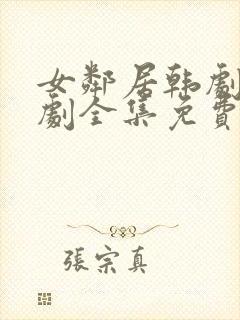 女鄰居韩劇
劇全集免費
張宗真